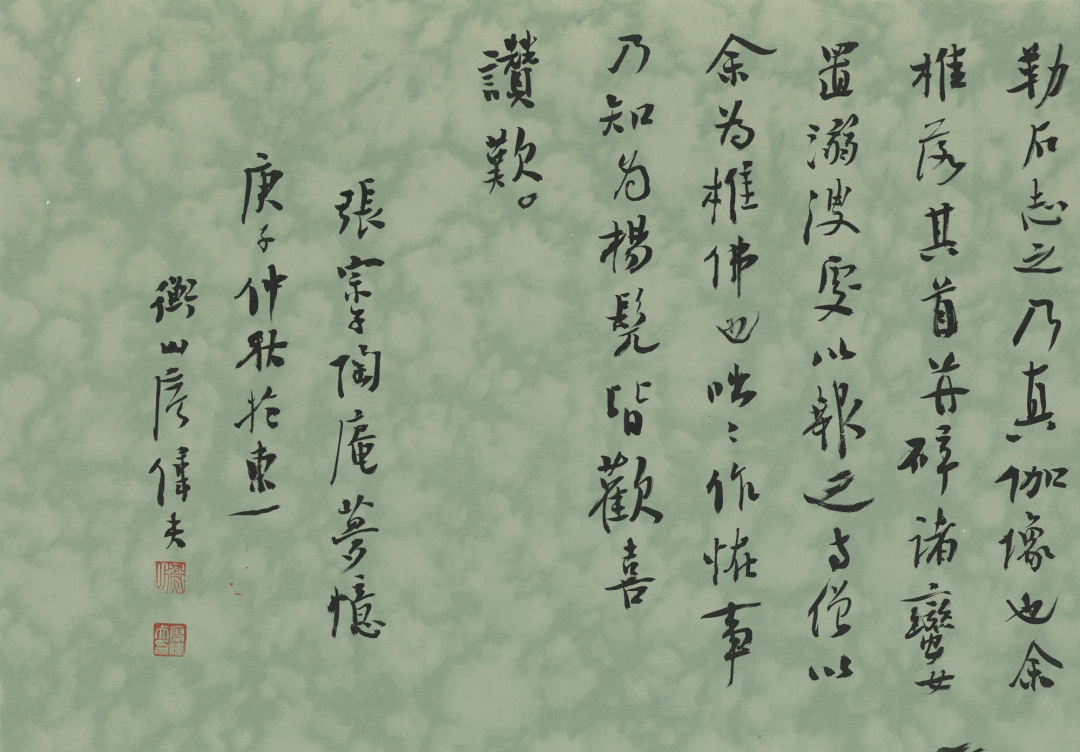 勒石志之乃真伽像也余
椎落其首并碎諸蠻女
置溺溲處以報之寺僧以
余為椎佛也咄咄作怪事
乃知為楊髡皆歡喜
讚歎。
張宗子陶庵夢憶
庚子仲秋於東一
衡山彦偉夫